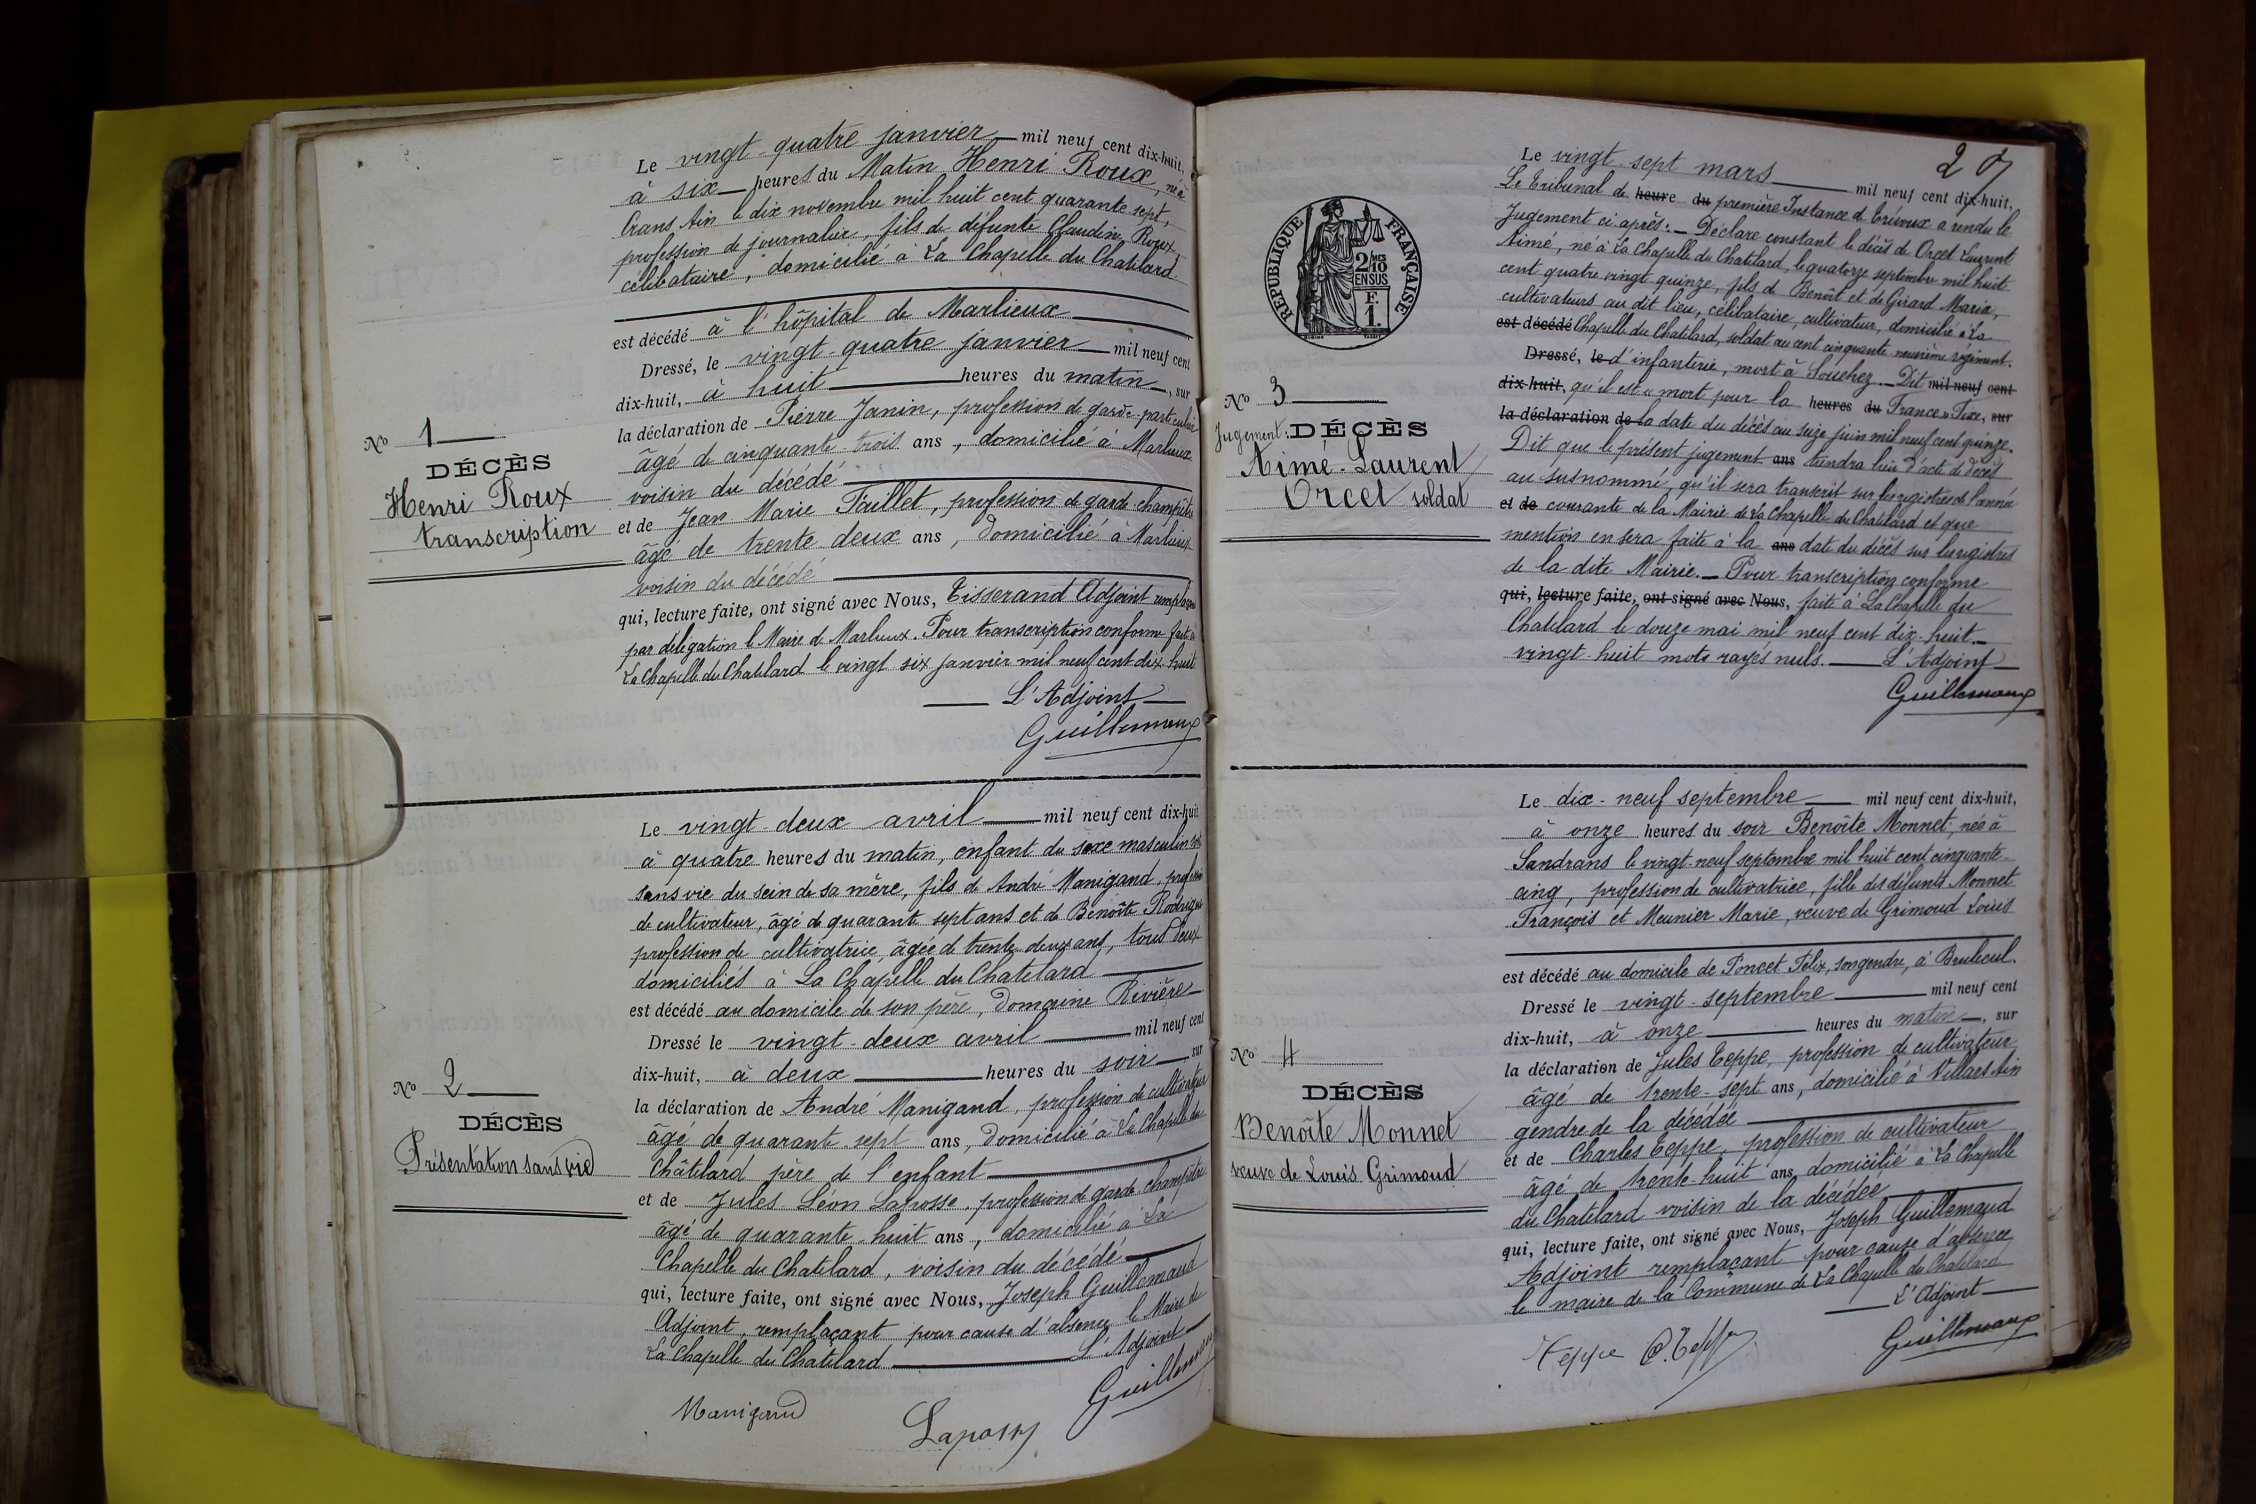 Le vingt-quatre janvier mil neuf cent dix-huit,
à six heures du Matin Henri Roux, né à
Crans Ain le dix novembre mil huit cent quarante sept,
profession de journalier, fils de défunte Claudine Roux
célibataire, domicilié à La Chapelle du Chatelard
est décédé à l'hôpital de Marlieux
Dressé, le vingt-quatre janvier mil neuf cent
dix-huit, à huit heures du matin, sur
la déclaration de Pierre Janin, profession de garde-particulier
âgé de cinquante trois ans, domicilié à Marlieux
voisin du décédé
et de Jean Marie Faillet, profession de garde champêtre
âgé de trente deux ans, domicilié à Marlieux
voisin du décédé
qui, lecture faite, ont signé avec Nous, Tisserand Adjoint remplaçant
par délégation le Maire de Marlieux. Pour transcription conforme faite à
La Chapelle du Chatelard le vingt six janvier mil neuf cent dix-huit
L'Adjoint
Guillemaud
No 1
DÉCÈS
Henri Roux
transcription
Le vingt-deux avril mil neuf cent dix-huit
à quatre heures du matin, enfant du sexe masculin
sans vie du sein de sa mère, fils de André Manigand, profession
de cultivateur, âgé de quarante sept ans et de Benoîte
profession de cultivatrice, âgée de trente deux ans, tous deux
domiciliés à La Chapelle du Chatelard
est décédé au domicile de son père, Domaine Rivière
Dressé le vingt-deux avril mil neuf cent
dix-huit, à deux heures du soir sur
la déclaration de André Manigand, profession de cultivateur
âgé de quarante sept ans, domicilié à La Chapelle du
Châtelard père de l'enfant
et de Jules Léon Laposse, profession de garde champêtre
âgé de quarante-huit ans, domicilié à La
Chapelle du Chatelard, voisin du décédé
qui, lecture faite, ont signé avec Nous, Joseph Guillemaud
Adjoint, remplaçant pour cause d'absence le Maire de
La Chapelle du Chatelard L'Adjoint
Guillemaud
Manigand
No 2
DÉCÈS
Présentation sans vie
REPUBLIQUE FRANÇAISE
2/10 MES
EN SUS
F.
1.
Le vingt-sept mars mil neuf cent dix-huit,
Le Tribunal de heure du première Instance de Trévoux a rendu le
Jugement ci après:- Déclare constant le décès de Orcet Laurent
Aimé, né à La Chapelle du Chatelard, le quatorze septembre mil huit
cent quatre vingt quinze, fils de Benoît et de Girard Marie,
cultivateurs au dit lieu, célibataire, cultivateur, domicilié à La
est décédé Chapelle du Chatelard, soldat au cent cinquante-neuvième régiment
Dressé, le d'infanterie, mort à Souchez.- Dit mil neuf cent
dix-huit, qu'il est « mort pour la heures du France» Fixe, sur
la déclaration de la date du décès au seize juin mil neuf cent quinze.
Dit que le présent jugement ans tiendra lieu d'acte de décès
au susnommé, qu'il sera transcrit sur les registres de l'année
et de courante de la Mairie de La Chapelle du Chatelard et que
mention en sera faite à la ans date du décès sur les registres
de la dite Mairie.- Pour transcription conforme
qui, lecture faite, ont signé avec Nous, faite à La Chapelle du
Chatelard le douze mai mil neuf cent dix-huit.-
vingt-huit mots rayés nuls. L'Adjoint
Guillemaud
No 3
Jugement: DÉCÈS
Aimé-Laurent
Orcet soldat
Le dix-neuf septembre mil neuf cent dix-huit,
à onze heures du soir Benoîte Monnet, née à
Sandrans le vingt-neuf septembre mil huit cent cinquante-
cinq, profession de cultivatrice, fille des défunts Monnet
François et Meunier Marie, veuve de Grimoud Louis
est décédé au domicile de Poncet Félix, son gendre, à Brulecul.
Dressé le vingt-septembre mil neuf cent
dix-huit, à onze heures du matin, sur
la déclaration de Jules Teppe, profession de cultivateur
âgé de trente-sept ans, domicilié à Villars Ain
gendre de la décédée
et de Charles Teppe, profession de cultivateur
âgé de trente-huit ans, domicilié à La Chapelle
du Chatelard voisin de la décédée
qui, lecture faite, ont signé avec Nous, Joseph Guillemaud
Adjoint remplaçant pour cause d'absence
le maire de la Commune de La Chapelle du Chatelard
L'Adjoint
Teppe C. Teppe Guillemaud
No 4
DÉCÈS
Benoîte Monnet
veuve de Louis Grimoud